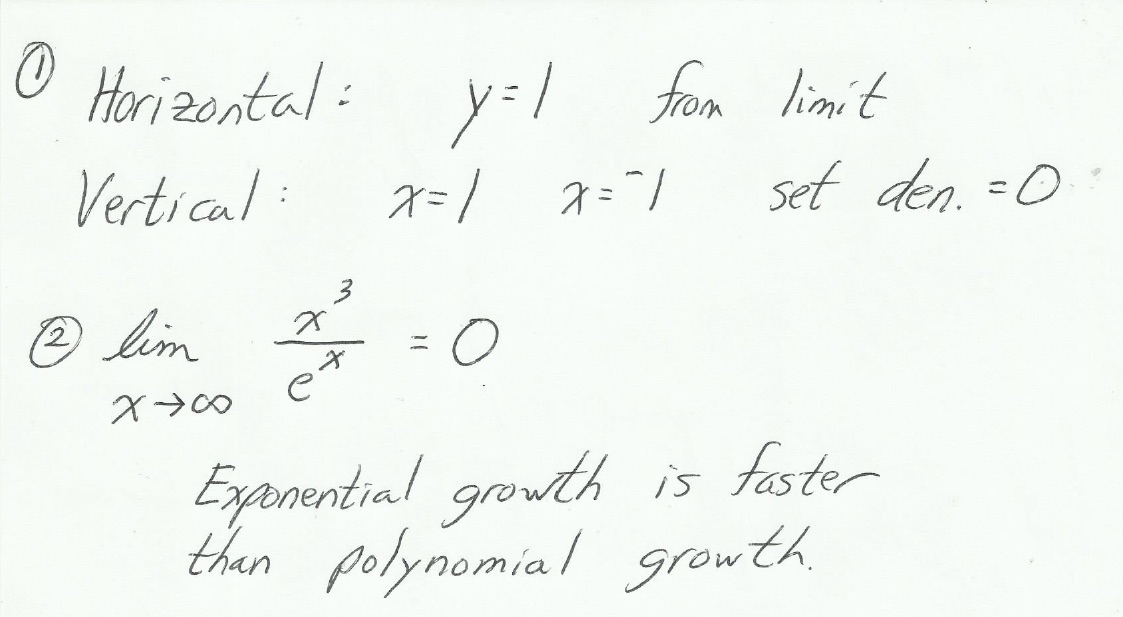 ① Horizontal: y=1 from limit
Vertical: x=1 x=⁻1 set den. =0
② lim x³/eˣ = 0
x→∞
Exponential growth is faster
than polynomial growth.